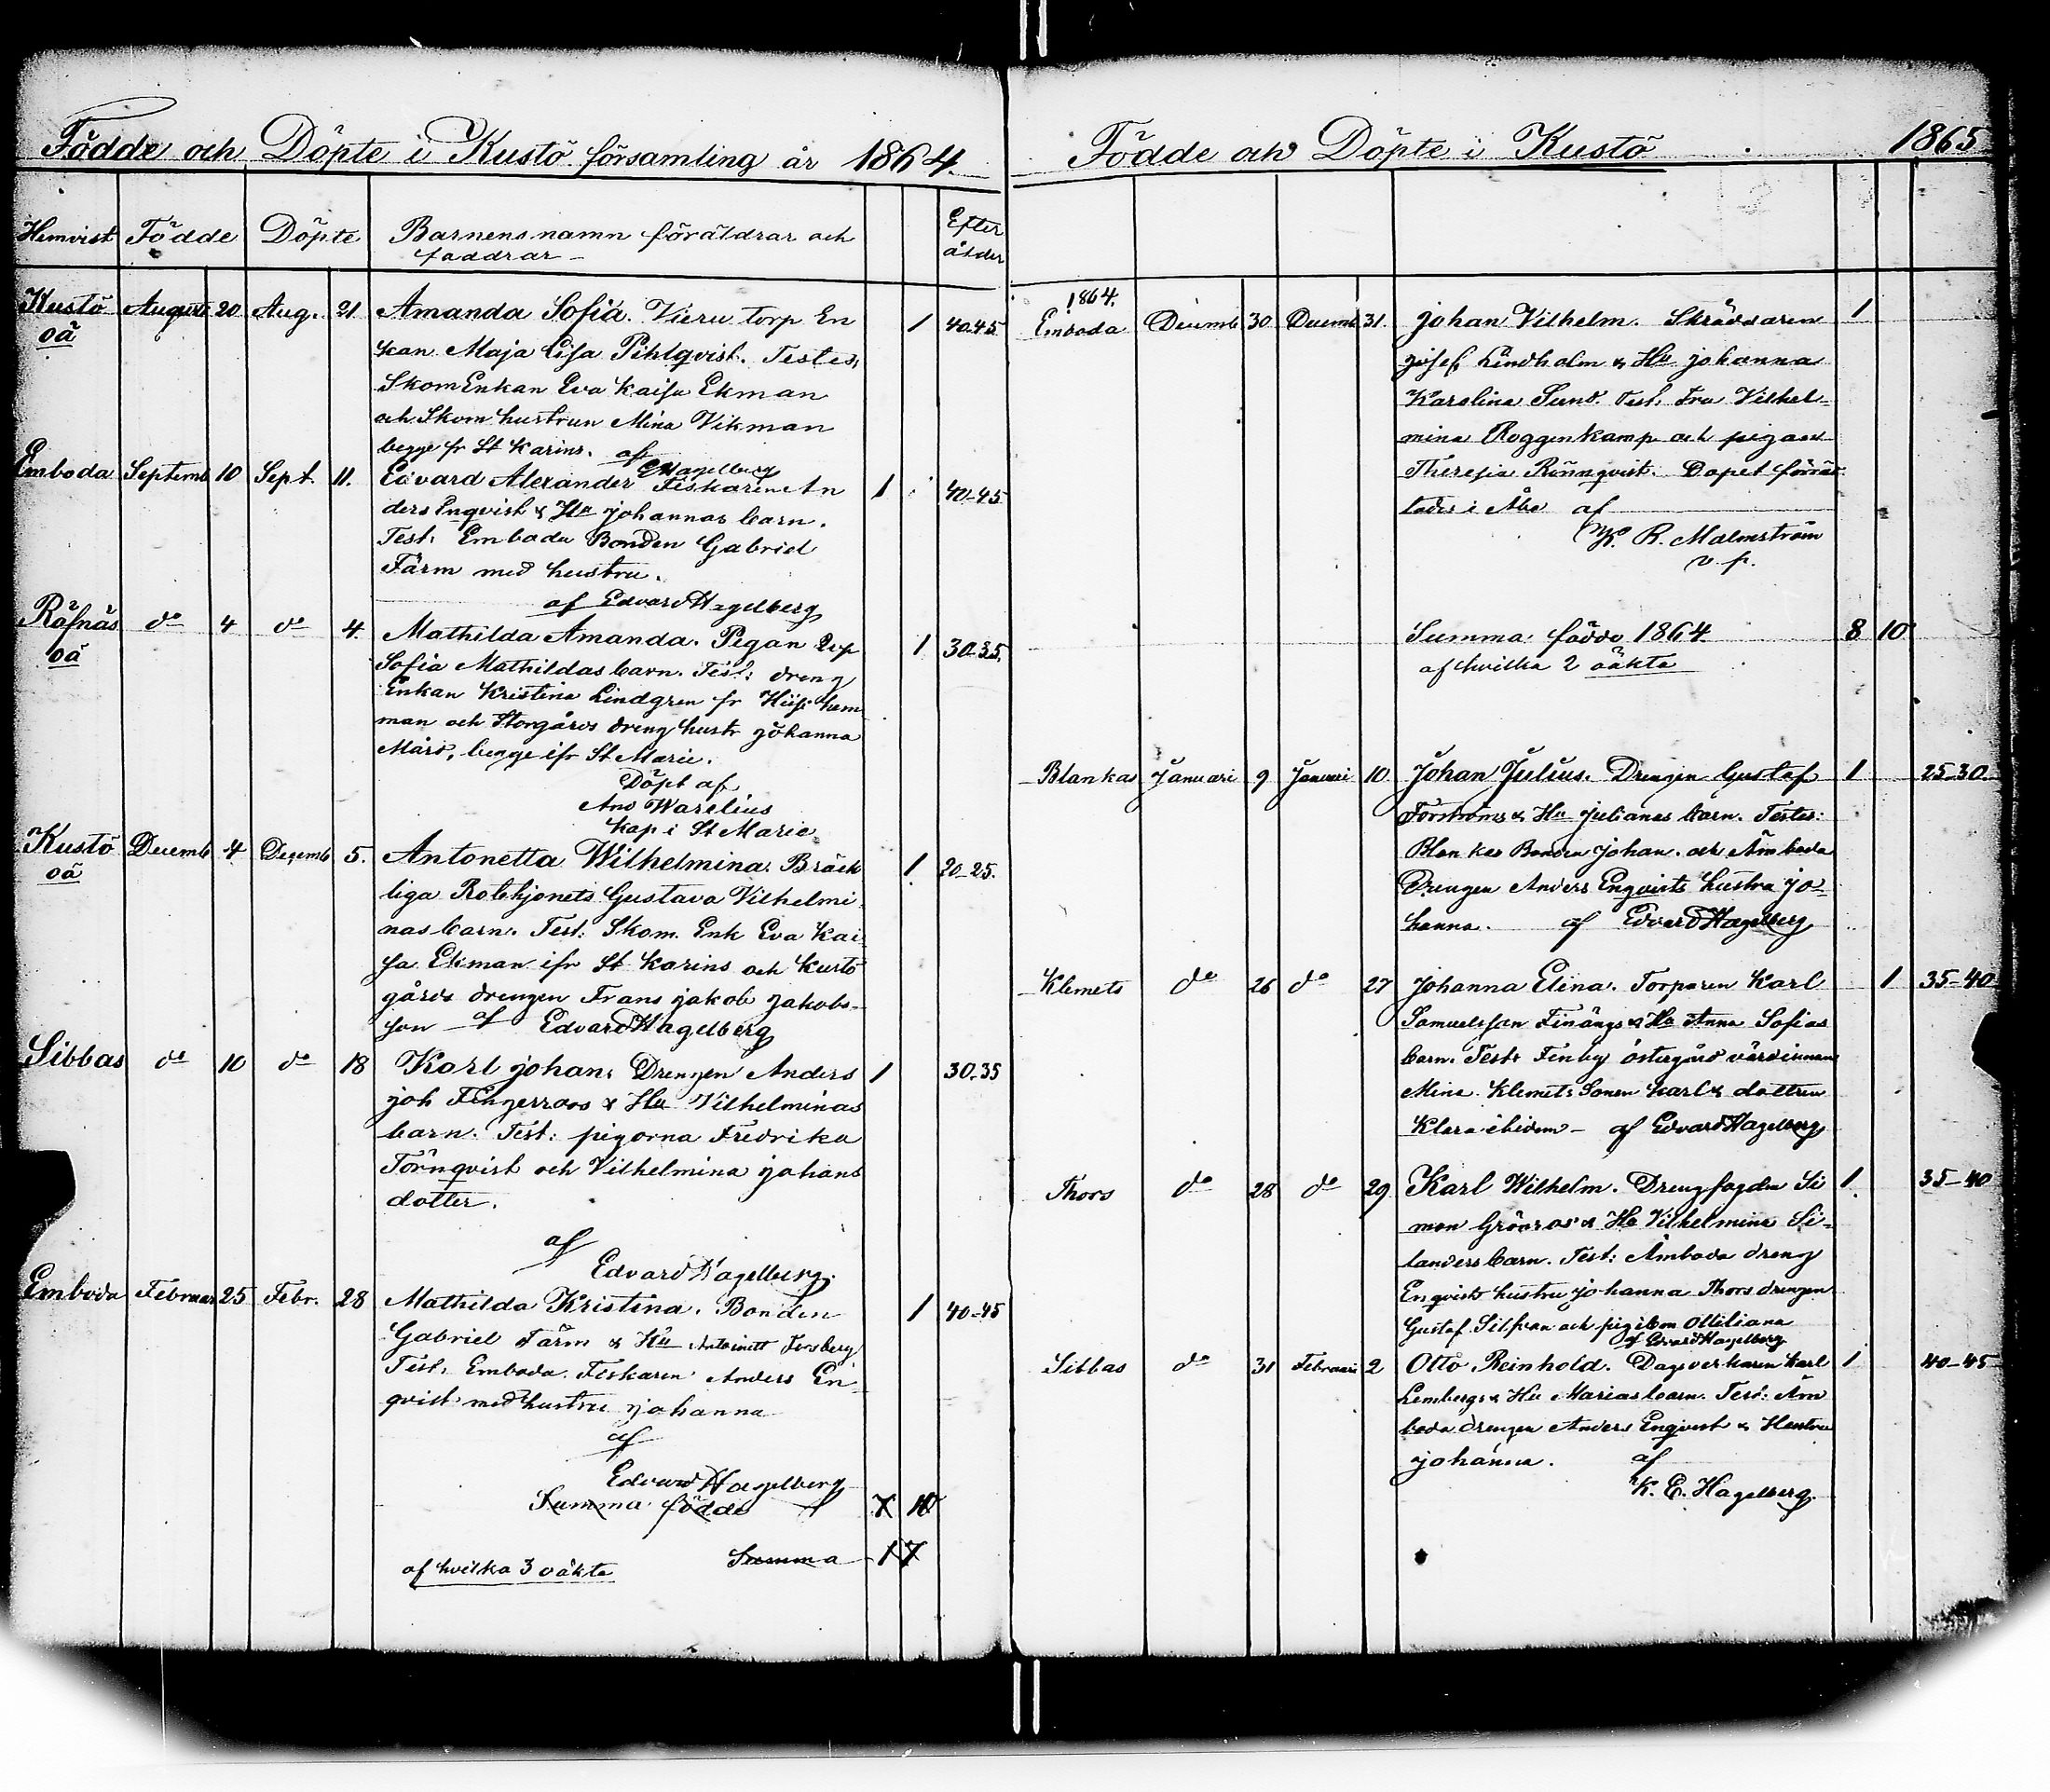 Födde och Döpte i Kustö församling år 1864.
Hemvist Födde Döpte Barnens namn föräldrar och Efter
faddrar ålder
Kustö Augusti 20 Aug. 21 Amanda Sofia. Vieru torp En 1 40-45
oä kan Maja Lisa Pihlqvist. Testes,
Skom Enkan Eva Kaisa Ekman
och Skom hustrun Mina Vikman
begge fr St Karins. af
EHagelberg
Emboda Septemb 10 Sept. 11. Edvard Alexander Fiskaren An 1 40-45
ders Enqvist & Hu Johannas barn.
Test: Emboda Bonden Gabriel
Färm med hustru.
af Edvard Hagelberg
Räfnäs do 4 do 4. Mathilda Amanda. Pigan 1 30-35.
oä Sofia Mathildas barn. Test: dreng
Enkan Kristina Lindgren fr hem
man och Storgårds dreng hustr Johanna
Mård, begge ifr St Marie.
Döpt af
And Warelius
Kap i St Marie
Kustö Decemb 4 Decemb 5. Antonetta Wilhelmina. Bräck 1 20-25.
oä liga Rotehjonets Gustava Vilhelmi
nas barn. Test: Skom. Enk Eva Kai
sa Ekman ifr St Karins och Kustö
gårds drengen Frans Jakob Jakobs-
son af Edvard Hagelberg
Sibbas do 10 do 18 Karl Johan. Drengen Anders 1 30-35
Joh Fingerroos & Hu Vilhelminas
barn. Test: pigorna Fredrika
Törnqvist och Vilhelmina Johans
dotter.
af
Edvard Hagelberg.
Emboda Februar 25 Febr. 28 Mathilda Kristina. Bonden 1 40-45
Gabriel Färm & Hu Antoinett Forsberg
Test: Emboda Fiskaren Anders En
qvist med hustru Johanna
af
Edvard Hagelberg
Summa födde 7 10
Summa 17
af hvilka 3 oäkta
Födde och Döpte i Kustö 1865
1864.
Emboda Decemb 30 Decemb 31. Johan Vilhelm. Skräddaren 1
Josef Lindholm & Hu Johanna
Karolina Sund. Test. Fru Vilhel-
mina Roggenkamp och pigan
Theresia Rönnqvist. Dopet förrät
tades i Åbo af
K. R. Malmström
v. p.
Summa födde 1864 8 10
af hvilka 2 oäkta
Blankas Januari 9 Januari 10 Johan Julius. Drengen Gustaf 1 25-30
Forströms & Hu Julianas barn. Testes:
Blankas Bonden Johan. och Ämboda
Drengen Anders Enqvists hustru Jo-
hanna. af Edvard Hagelberg
Klemets do 26 do 27 Johanna Elina. Torparen Karl 1 35-40
Samuelsson Finängs & Hu Anna Sofias
barn. Test: Finby östergård värdinnan
Mina Klemets Sonen Karl & dottren
Klara ibidem - af Edvard Hagelberg
Thors do 28 do 29 Karl Wilhelm. Drengfogden Si 1. 35-40
mon Grönroos & Hu Vilhelmina Si-
landers barn. Test: Ämboda dreng
Enqvists hustru Johanna Thors drengen
Gustaf Silfvan och Ottiliana
af Edvard Hagelberg
Sibbas do 31 Februari 2 Otto Reinhold. Dagsverkaren Karl 1 40-45
Lembergs & Hu Marias barn. Test: Äm
boda drengen Anders Enqvist & Hustru
Johanna. af
K. E. Hagelberg.